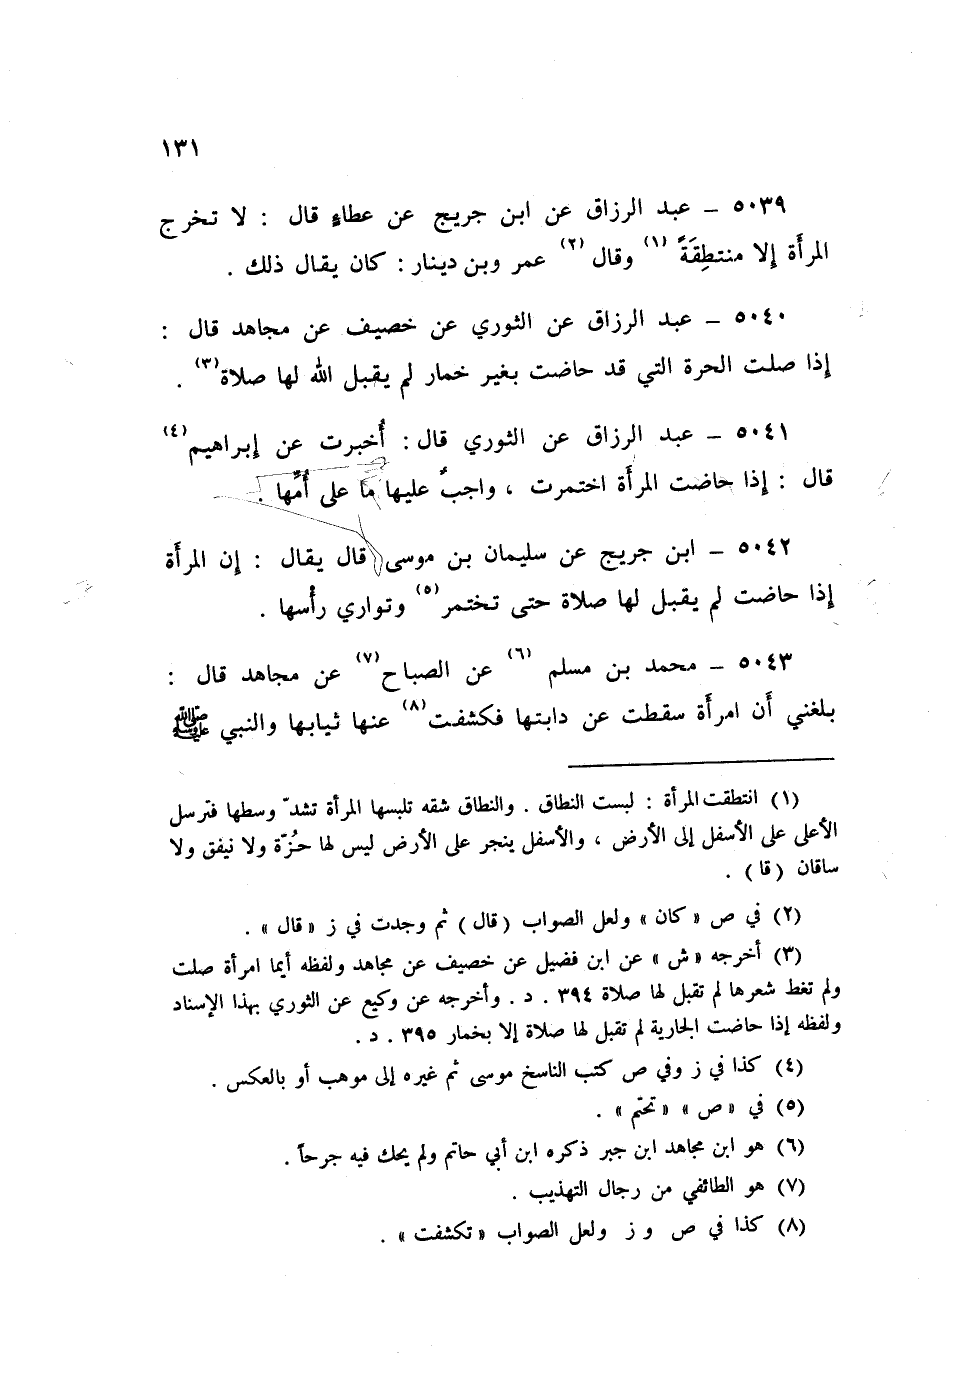 ١٣١
٥٠٣٩ – عبد الرزاق عن ابن جريج عن عطاءٍ قال : لا تخرج
المرأَة إلا منتطِقَةً (١) وقال (٢) عمر وبن دينار : كان يقال ذلك .
٥٠٤٠ – عبد الرزاق عن الثوري عن خصيف عن مجاهد قال :
إذا صلت الحرة التي قد حاضت بغير خمار لم يقبل الله لها صلاة (٣) .
٥٠٤١ – عبد الرزاق عن الثوري قال : أُخبرت عن إبراهيم (٤)
قال : إذا حاضت المرأَة اختمرت ، واجبٌ عليها ما على أُمِّها .
٥٠٤٢ – ابن جريج عن سليمان بن موسى قال يقال : إن المرأَة
إذا حاضت لم يقبل لها صلاة حتى تختمر (٥) وتواري رأْسها .
٥٠٤٣ – محمد بن مسلم (٦) عن الصباح (٧) عن مجاهد قال :
بلغني أَن امرأَة سقطت عن دابتها فكشفت (٨) عنها ثيابها والنبي ﷺ
(١) انتطقت المرأة : لبست النطاق . والنطاق شقه تلبسها المرأة تشدّ وسطها فترسل
الأعلى على الأسفل إلى الأرض ، والأسفل ينجر على الأرض ليس لها حُزّة ولا نيفق ولا
ساقان (قا) .
(٢) في ص «كان» ولعل الصواب (قال) ثم وجدت في ز «قال» .
(٣) أخرجه «ش» عن ابن فضيل عن خصيف عن مجاهد ولفظه أيما امرأة صلت
ولم تغط شعرها لم تقبل لها صلاة ٣٩٤ . د . وأخرجه عن وكيع عن الثوري بهذا الإسناد
ولفظه إذا حاضت الجارية لم تقبل لها صلاة إلا بخمار ٣٩٥ . د .
(٤) كذا في ز وفي ص كتب الناسخ موسى ثم غيره إلى موهب أو بالعكس .
(٥) في «ص» «تحتم» .
(٦) هو ابن مجاهد ابن جبر ذكره ابن أبي حاتم ولم يحك فيه جرحاً .
(٧) هو الطائفي من رجال التهذيب .
(٨) كذا في ص و ز ولعل الصواب «تكشفت» .